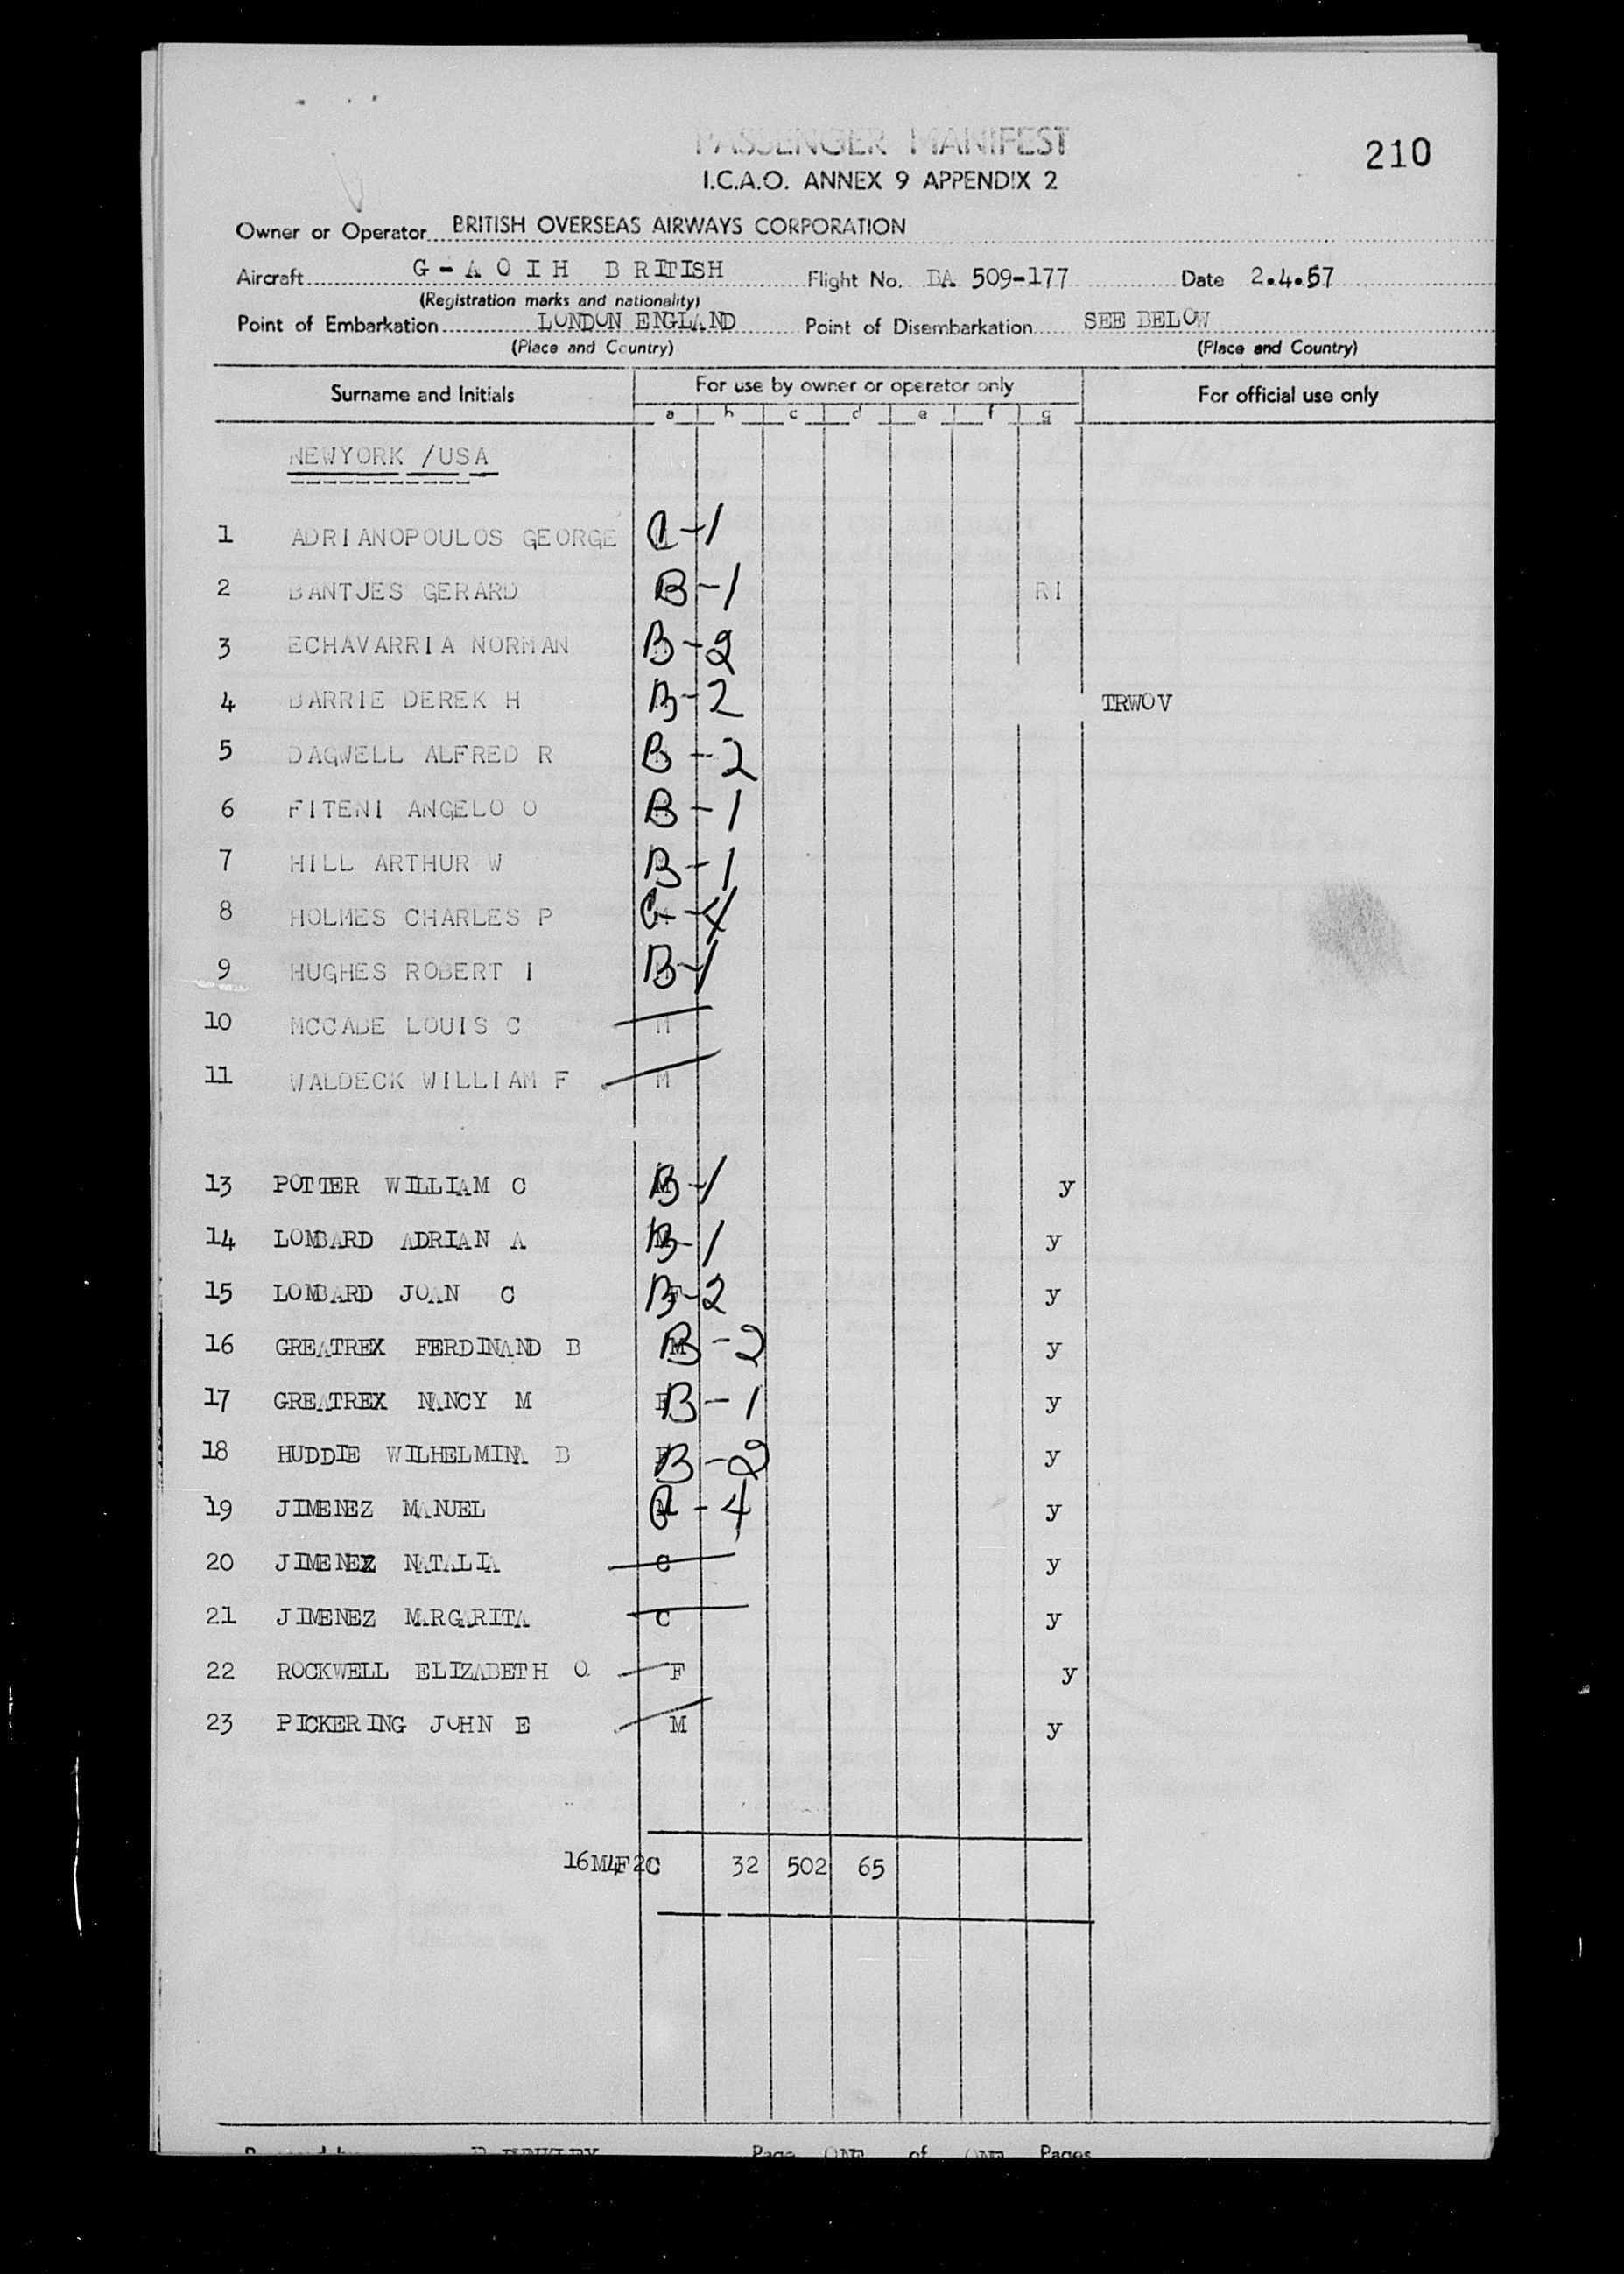 PASSENGER MANIFEST
210
I.C.A.O. ANNEX 9 APPENDIX 2
Owner or Operator BRITISH OVERSEAS AIRWAYS CORPORATION
Aircraft G-AOIH BRITISH Flight No. BA 509-177 Date 2.4.57
(Registration marks and nationality)
Point of Embarkation LONDON ENGLAND Point of Disembarkation SEE BELOW
(Place and Country) (Place and Country)
Surname and Initials For use by owner or operator only For official use only
a b c d e f g
NEWYORK /USA
1 ADRIANOPOULOS GEORGE -1
2 BANTJES GERARD B-1 RI
3 ECHAVARRIA NORMAN B-2
4 BARRIE DEREK H B-2 TRWOV
5 DAGWELL ALFRED R B-2
6 FITENI ANGELO O B-1
7 HILL ARTHUR W B-1
8 HOLMES CHARLES P G-4
9 HUGHES ROBERT I B-1
10 MCCABE LOUIS C M
11 WALDECK WILLIAM F M
13 POTTER WILLIAM C M B-1 y
14 LOMBARD ADRIAN A M B-1 y
15 LOMBARD JOAN C F B-2 y
16 GREATREX FERDINAND B M B-2 y
17 GREATREX NANCY M F B-1 y
18 HUDDIE WILHELMINA B F B-2 y
19 JIMENEZ MANUEL M -4 y
20 JIMENEZ NATALIA C y
21 JIMENEZ MARGARITA C y
22 ROCKWELL ELIZABETH O F y
23 PICKERING JOHN E M y
16M4F2C 32 502 65
Page ONE of ONE Pages